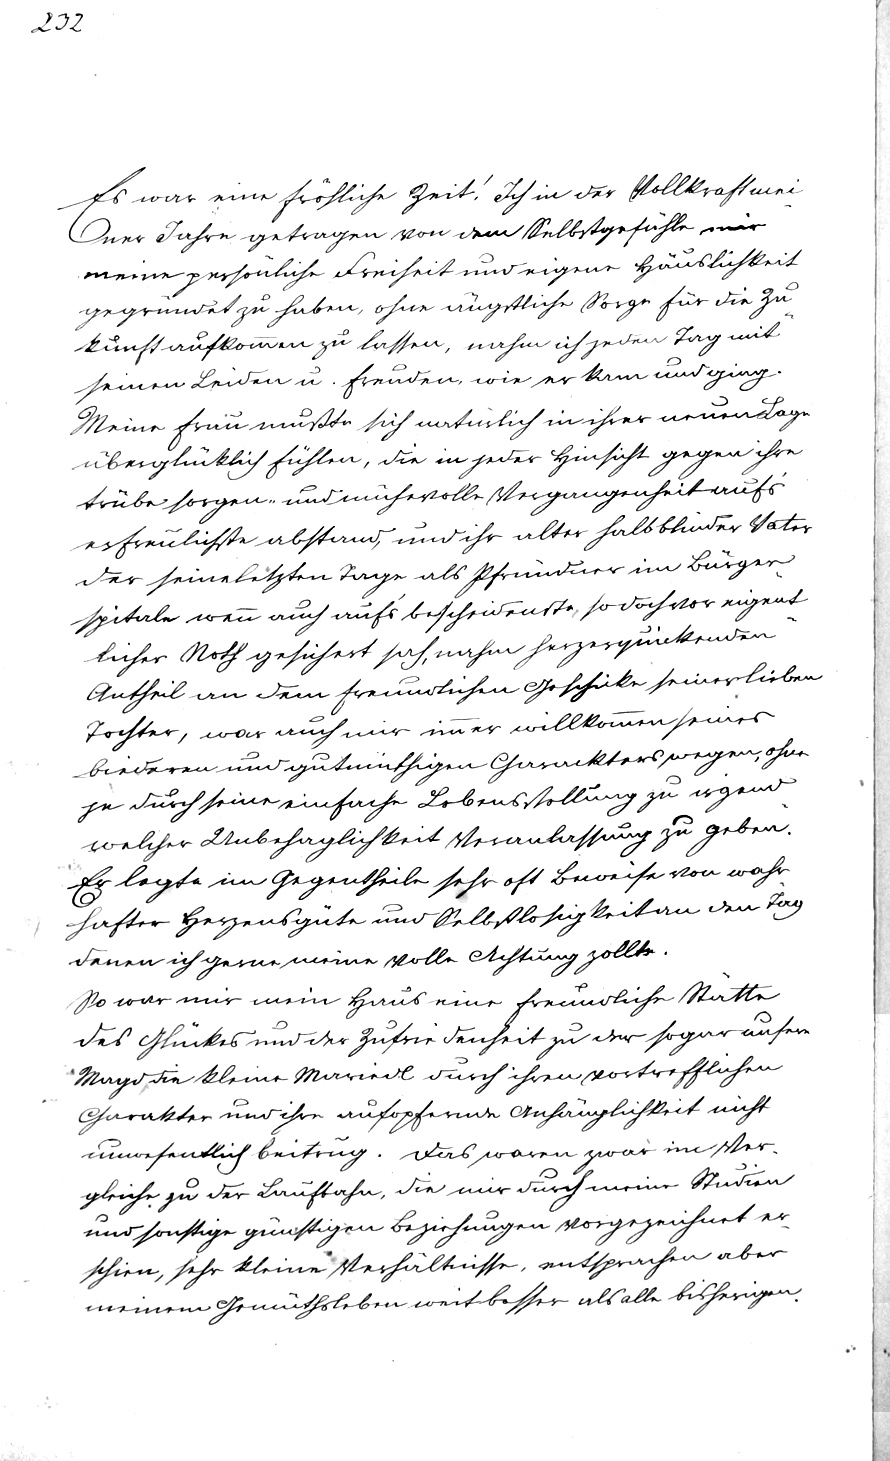 232
Es war eine fröhliche Zeit! Ich in der Vollkraft mei-
ner Jahre getragen von dem Selbstgefühle mir
meine persönliche Freiheit und eigene Häuslichkeit
gegründet zu haben, ohne ängstliche Sorge für die Zu-
kunft aufkom̅en zu lassen, nahm ich jeden Tag mit
seinen Leiden u. Freuden, wie er kam und ging.
Meine Frau mußte sich natürlich in ihrer neuen Lage
überglücklich fühlen, die in jeder Hinsicht gegen ihre
trübe sorgen- und mühevolle Vergangenheit auf's
erfreulichste abstand, und ihr alter halbblinder Vater
der seine letzten Tage als Pfründner im Bürger-
spitale wen̅ auch auf's bescheidenste, so doch vor eigent-
licher Noth gesichert sah, nahm herzerquickenden
Antheil an dem freundlichen Geschicke seiner lieben
Tochter, war auch mir im̅er willkom̅en seines
biederen und gutmüthigen Charackters wegen, ohne
je durch seine einfache Lebensstellung zu irgend
welcher Unbehaglichkeit Veranlassung zu geben.
Er legte im Gegentheile sehr oft Beweise von wahr-
hafter Herzensgüte und Selbstlosigkeit an den Tag
denen ich gerne meine volle Achtung zollte.
So war mir mein Haus eine freundliche Stätte
des Glückes und der Zufriedenheit zu der sogar unsere
Magd die kleine Mariedl durch ihren vortrefflichen
Charakter und ihre aufopfernde Anhänglichkeit nicht
unwesentlich beitrug. Das waren zwar im Ver-
gleiche zu der Laufbahn, die mir durch meine Studien
und sonstige günstigen Beziehungen vorgezeichnet er-
schien, sehr kleine Verhältnisse, entsprachen aber
meinem Gemüthsleben weit besser als alle bisherigen.